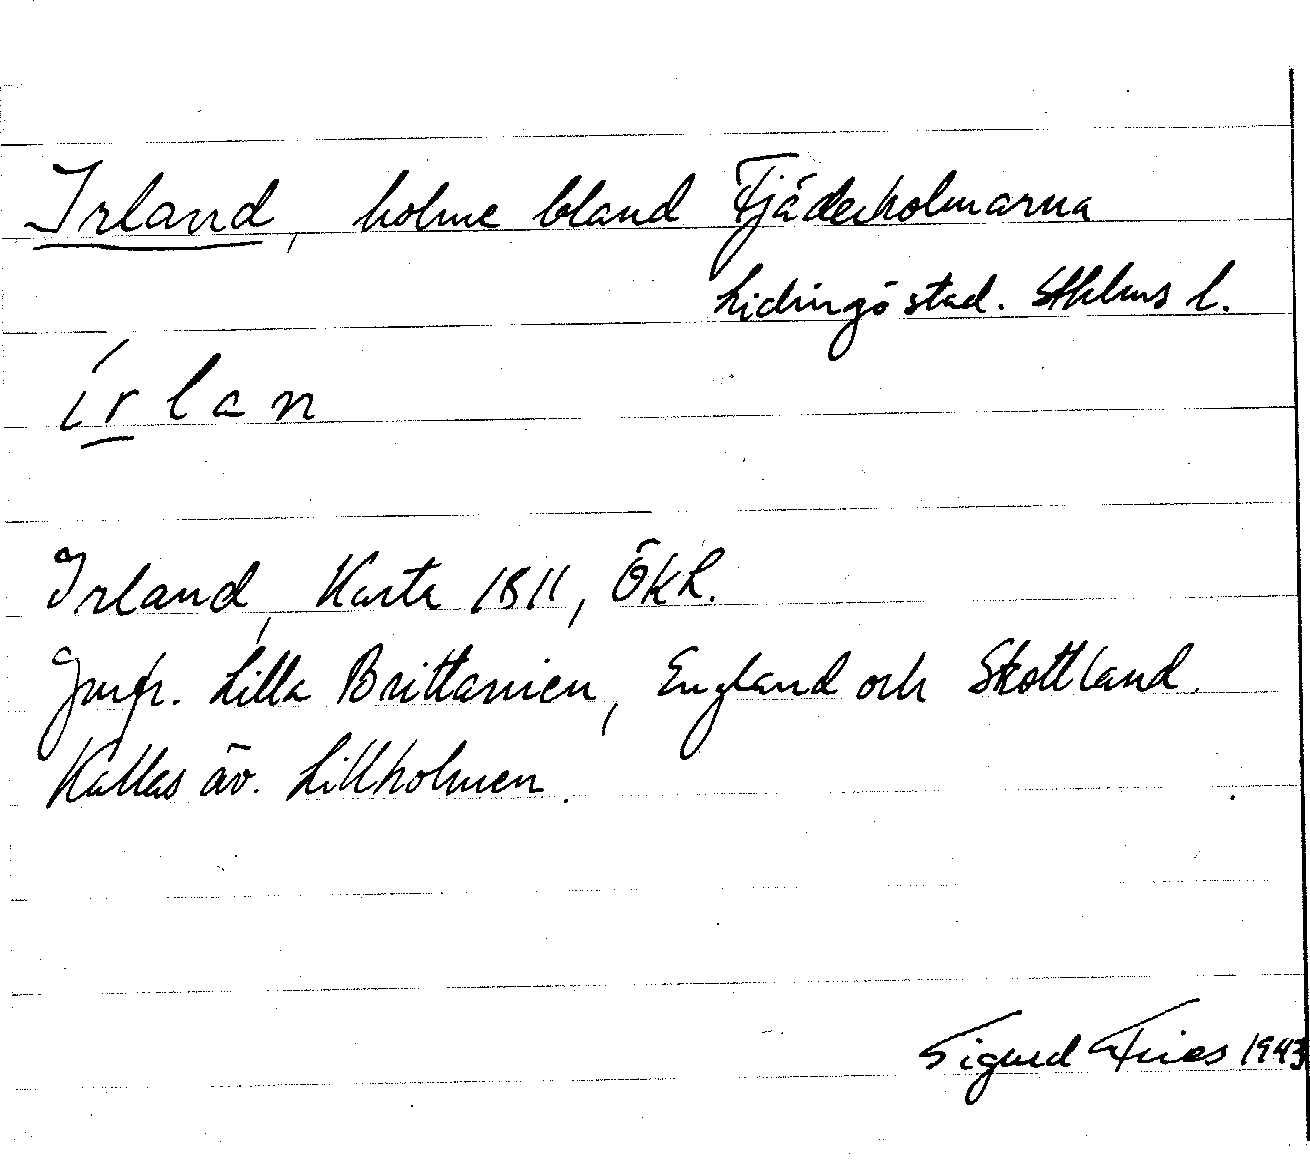 Irland, holme bland Fjäderholmarna
Lidingö stad. Sthlms l.
írlan
Irland, Karta 1811, ÖKL.
Jmfr. Lilla Brittanien, England och Skottland.
Kallas äv. Lillholmen.
Sigurd Fries 1943